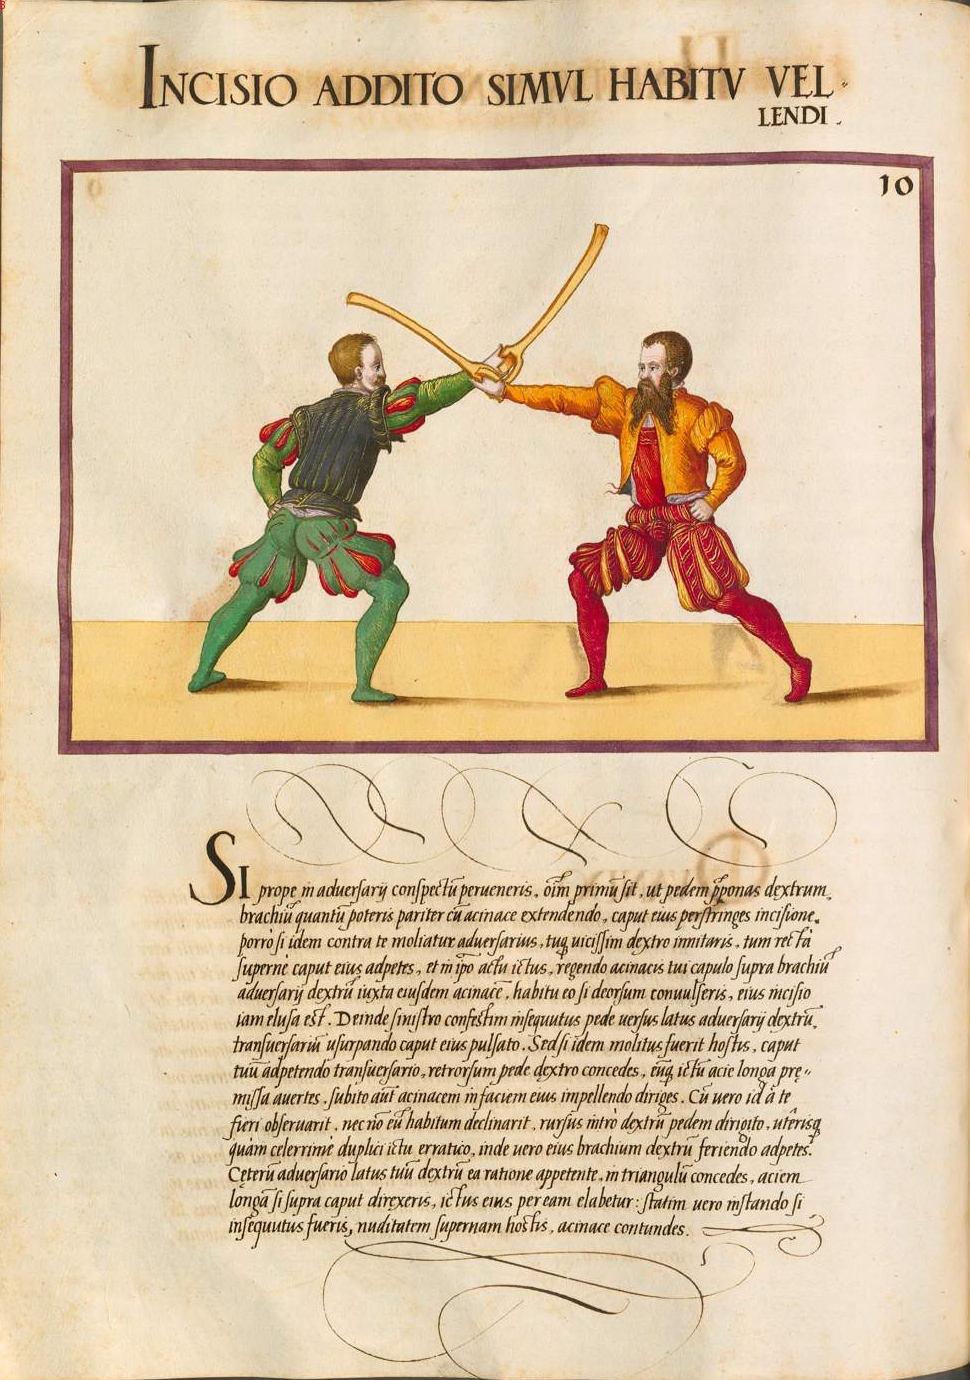 INCISIO ADDITO SIMVL HABITV VEL-
LENDI.
10
SI prope in adversarij conspectũ perveneris, oĩm primũ sit, ut pedem p̃ponas dextrum,
brachiũ quantũ poteris pariter cũ acinace extendendo, caput eius perstringes incisione,
porrò si idem contra te moliatur adversarius, tuq̃ vicissim dextro innitaris, tum rectà
supernè caput eius adpetes, et in ip̃o actu ictus, regendo acinacis tui capulo supra brachiũ
adversarij dextrũ iuxta eiusdem acinacẽ, habitu eo si deorsum convulseris, eius incisio
iam elusa est. Deinde sinistro confestim insequutus pede versus latus adversarij dextrũ,
transversariã usurpando caput eius pulsato. Sed si idem molitus fuerit hostis, caput
tuũ adpetendo transversario, retrorsum pede dextro concedes, eũq̃ ictũ acie longa prę-
missa avertes, subito aũt acinacem in faciem eius impellendo diriges. Cũ vero id à te
fieri observarit, nec nõ eũ habitum declinarit, rursus intrò dextrũ pedem dirigito, uterisq̃
quàm celerrimè duplici ictu erratico, inde vero eius brachium dextrũ feriendo adpetes.
Cęterũ adversario latus tuũ dextrũ ea ratione appetente, in triangulũ concedes, aciem
longã si supra caput direxeris, ictus eius per eam elabetur: statim vero instando si
insequutus fueris, nuditatem supernam hostis, acinace contundes.